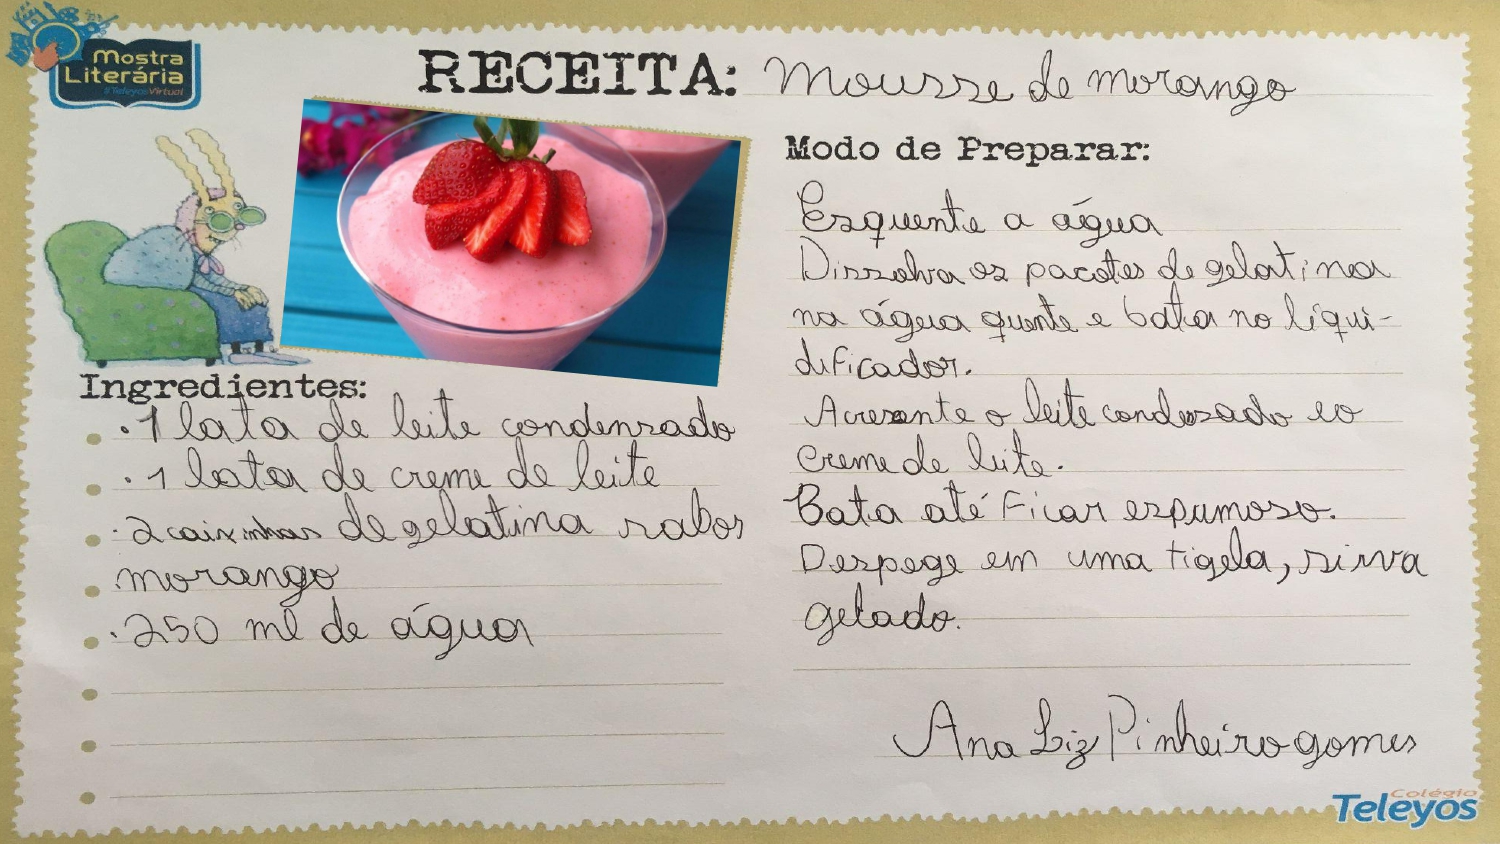 Mostra
Literária
#TeleyosVirtual
RECEITA: Mousse de morango
Ingredientes:
. 1 lata de leite condensado
. 1 lata de creme de leite
. 2 caixinhas de gelatina sabor
morango
. 250 ml de água
Modo de Preparar:
Esquente a água
Dissolva os pacotes de gelatina
na água quente e bata no liqui-
dificador.
Acresente o leite condesado e o
creme de leite.
Bata até ficar espumoso.
Despege em uma tigela, sirva
gelado.
Ana Liz Pinheiro gomes
Colégio
Teleyos